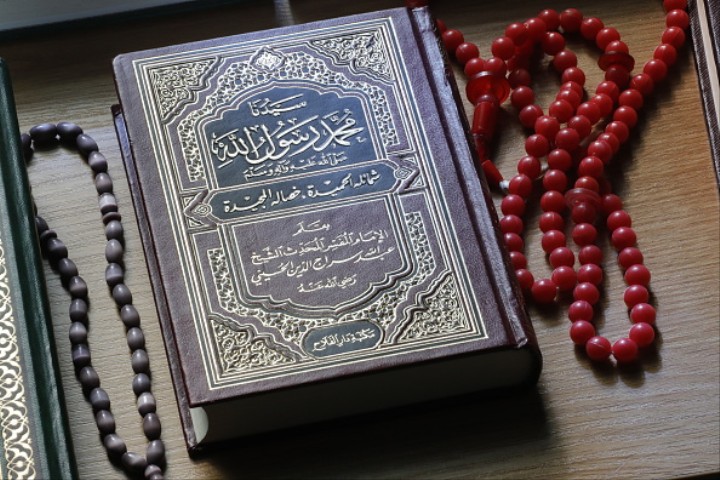 سيدنا
محمد رسول الله
صلى الله عليه وآله وسلم
شمائله الحميدة ، خصاله المجيدة
بقلم
الإمام المفسر المحدث الشيخ
عبد الله سراج الدين الحسيني
رضي الله عنه
مكتبة دار الفلاح